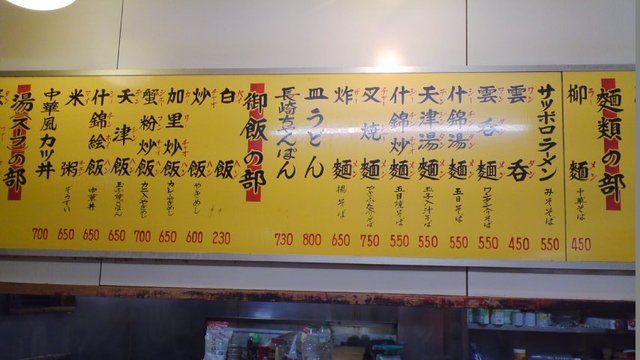 麵類の部
柳麵 ラーメン 中華そば 450
サッポロラーメン みそそば 550
雲呑 ワンタン 450
雲呑麵 ワンタンメン ワンタンそば 550
什錦湯麵 五目そば 550
天津湯麵 玉子入汁そば 550
什錦炒麵 五目焼そば 550
叉焼麵 チャーシューメン 750
炸麵 揚そば 650
皿うどん 800
長崎ちゃんぽん 730
御飯の部
白飯 230
炒飯 やきめし 600
加里炒飯 カレーやきめし 650
蟹粉炒飯 カニ入やきめし 700
天津飯 650
什錦絵飯 中華丼 650
米粥 ぞうすい 650
中華風カツ丼 700
湯(スープ)の部